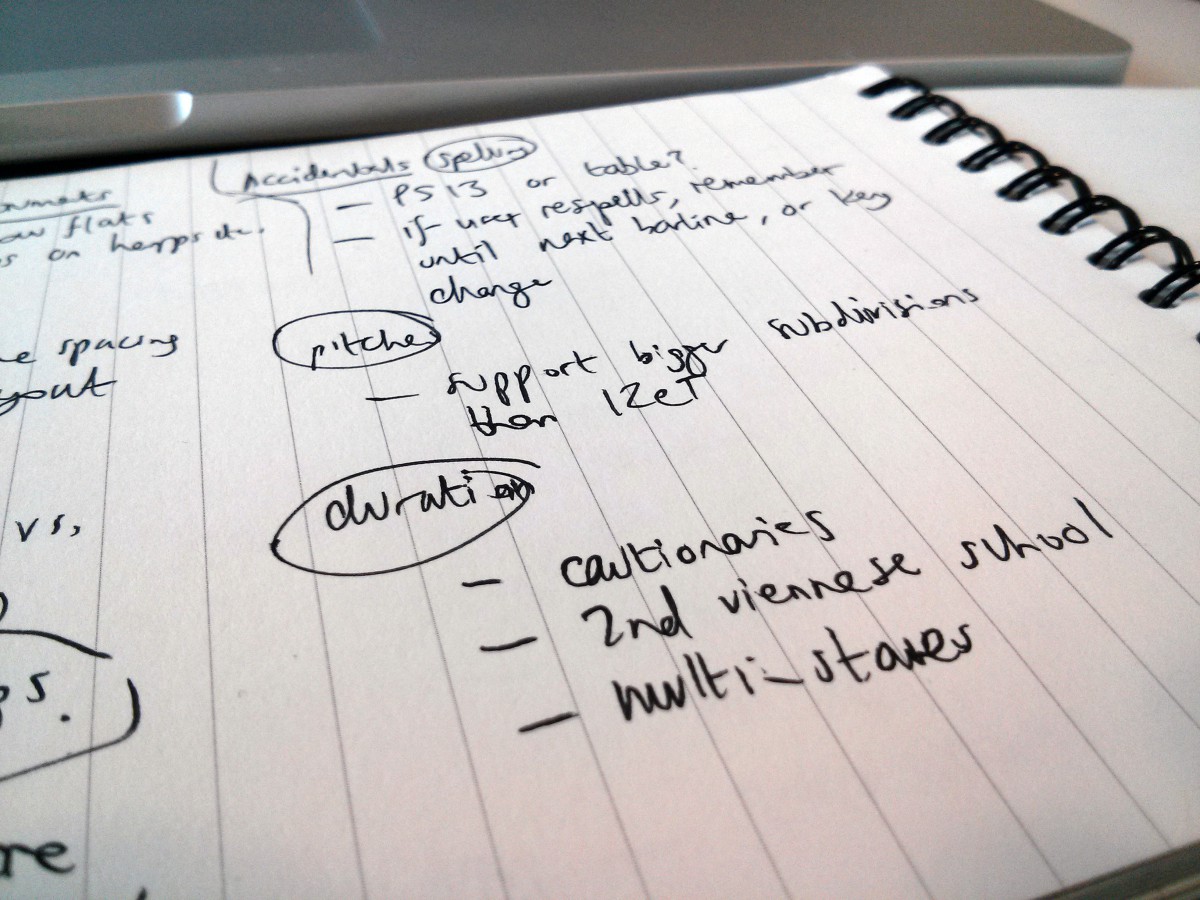 Accidentals spelling
- PS13 or table?
- if user respells, remember
until next barline, or key
change
ow flats
s on harps etc.
e spacing
yout
pitches
- support bigger subdivisions
than 12eT
vs.
duration
- cautionaries
- 2nd viennese school
- multi-staves
ps.
re